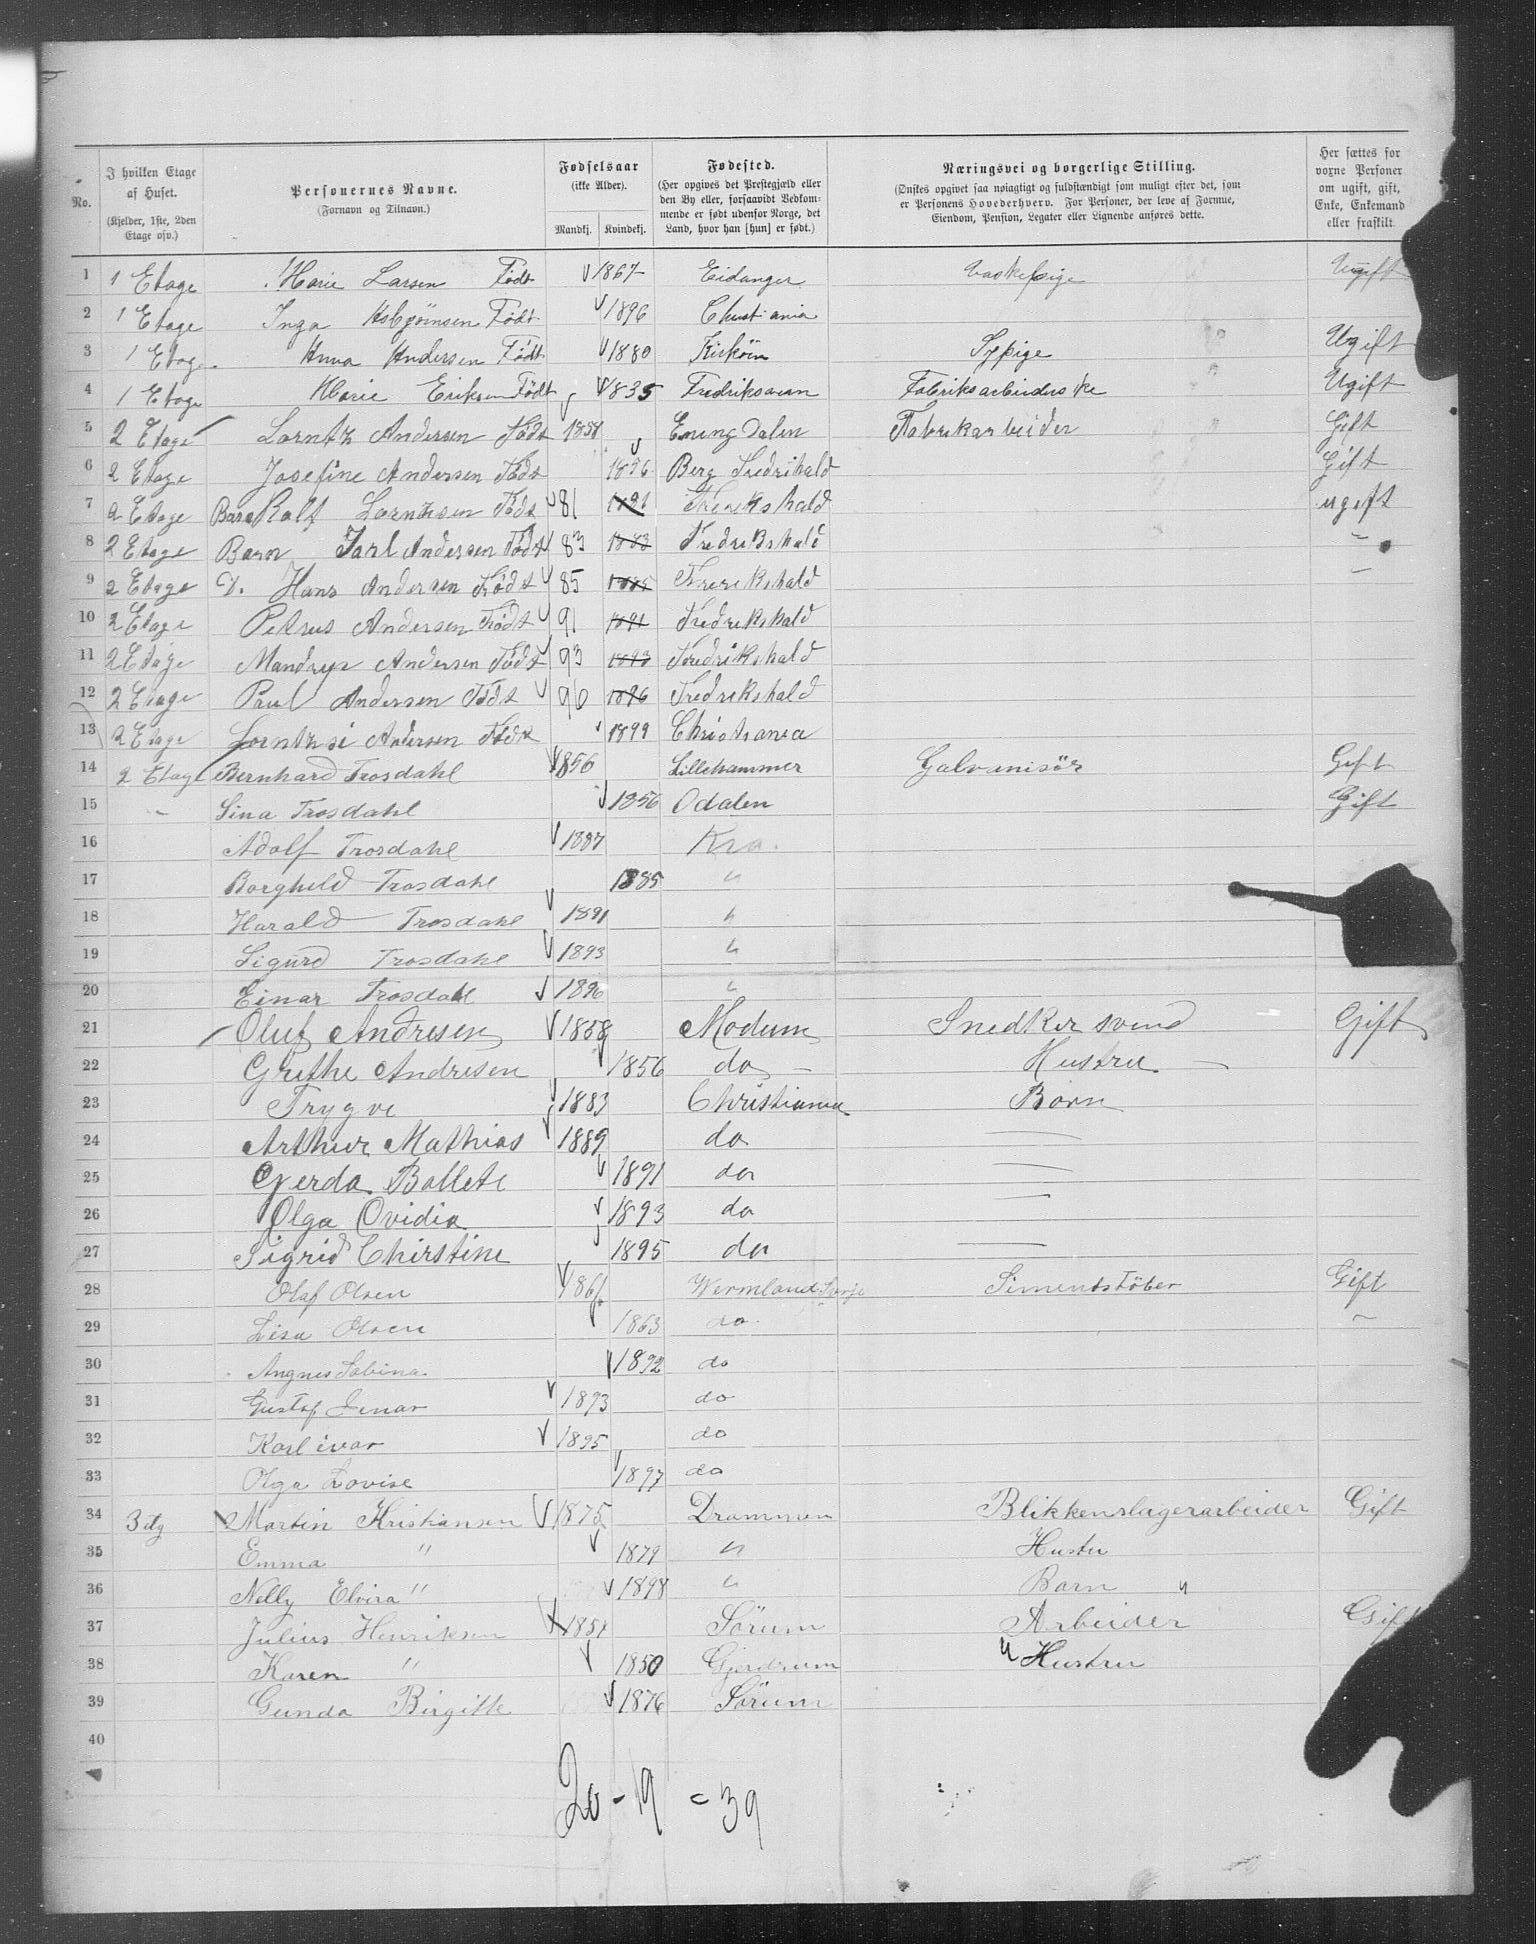 No. | I hvilken Etage af Huset. (Kjelder, 1ste, 2den Etage osv.) | Personernes Navne. (Fornavn og Tilnavn.) | Fødselsaar (ikke Alder). Mandkj. Kvindekj. | Fødested. (Her opgives det Prestegjæld eller den By eller, forsaavidt Vedkommende er født udenfor Norge, det Land, hvor han [hun] er født.) | Næringsvei og borgerlige Stilling. (Ønskes opgivet saa nøiagtigt og fuldstændigt som muligt efter det, som er Personens Hovederhverv. For Personer, der leve af Formue, Eiendom, Pension, Legater eller Lignende anføres dette. | Her sættes for voxne Personer om ugift, gift, Enke, Enkemand eller fraskilt.
1 1 Etage Marie Larsen Født 1867 Eidanger Vaskepige Ugift
2 1 Etage Inga Asbjörnsen Født 1896 Christiania
3 1 Etage Anna Andersen Födt 1880 Kirköen Sypige Ugift
4 1 Etage Marie Eriksen Födt 1835 Fredriksværn Fabriksarbeiderske Ugift
5 2 Etage Lorntz Andersen Födt 1858 Eningdalen Fabrikarbeider Gift
6 2 Etage Josefine Andersen Födt 1856 Berg Fredrihald Gift
7 2 Etage Barn Ralf Lorntzsen Födt 81 1881 Frerikshald ugift
8 2 Etage Barn Jarl Andersen Födt 83 1883 Fredrikshald "
9 2 Etage D. Hans Andersen Födt 85 1885 Frerikshald
10 2 Etage Petrus Andersen Födt 91 1891 Fredrekshald
11 2 Etage Mandrys Andersen Födt 93 1893 Fredrikshald
12 2 Etage Paul Andersen Födt 96 1896 Fredrekshald
13 2 Etage Lorntzsi Andersen Födt 1899 Christiania
14 2 Etage Bernhard Trosdahl 1856 Lillehammer Galvanisör Gift
15 " Lina Trosdahl 1856 Odalen Gift
16 Adolf Trosdahl 1887 Kra.
17 Borghild Trosdahl 1885 "
18 Harald Trosdahl 1891 "
19 Sigurd Trosdahl 1893 "
20 Einar Trosdahl 1896 "
21 Oluf Andresen 1858 Modum Snedker svend Gift
22 Grethe Andresen 1856 do Hustru
23 Trygve 1883 Christiania Barn
24 Arthur Mathias 1889 do —
25 Gerda Ballete 1891 do —
26 Olga Ovidia 1893 do —
27 Sigrid Chirstine 1895 do —
28 Olaf Olsen 1861 Wermland Sverje Simentstöber Gift
29 Lisa Olsen 1863 do "
30 Angnes Sabina 1892 do
31 Gustaf Jenar 1893 do
32 Karl ivar 1895 do
33 Olga Lovise 1897 do
34 3 etg Martin Kristiansen 1875 Drammen Blikkenslagerarbeider Gift
35 Emma " 1879 " Hustru
36 Nelly Elvira " 1898 " Barn "
37 Julius Henriksen 1851 Sörum Arbeider Gift
38 Karen " 1850 Gjerdrum " Hustru
39 Gunda Birgitte 1876 Sörum
40
20 - 19 = 39